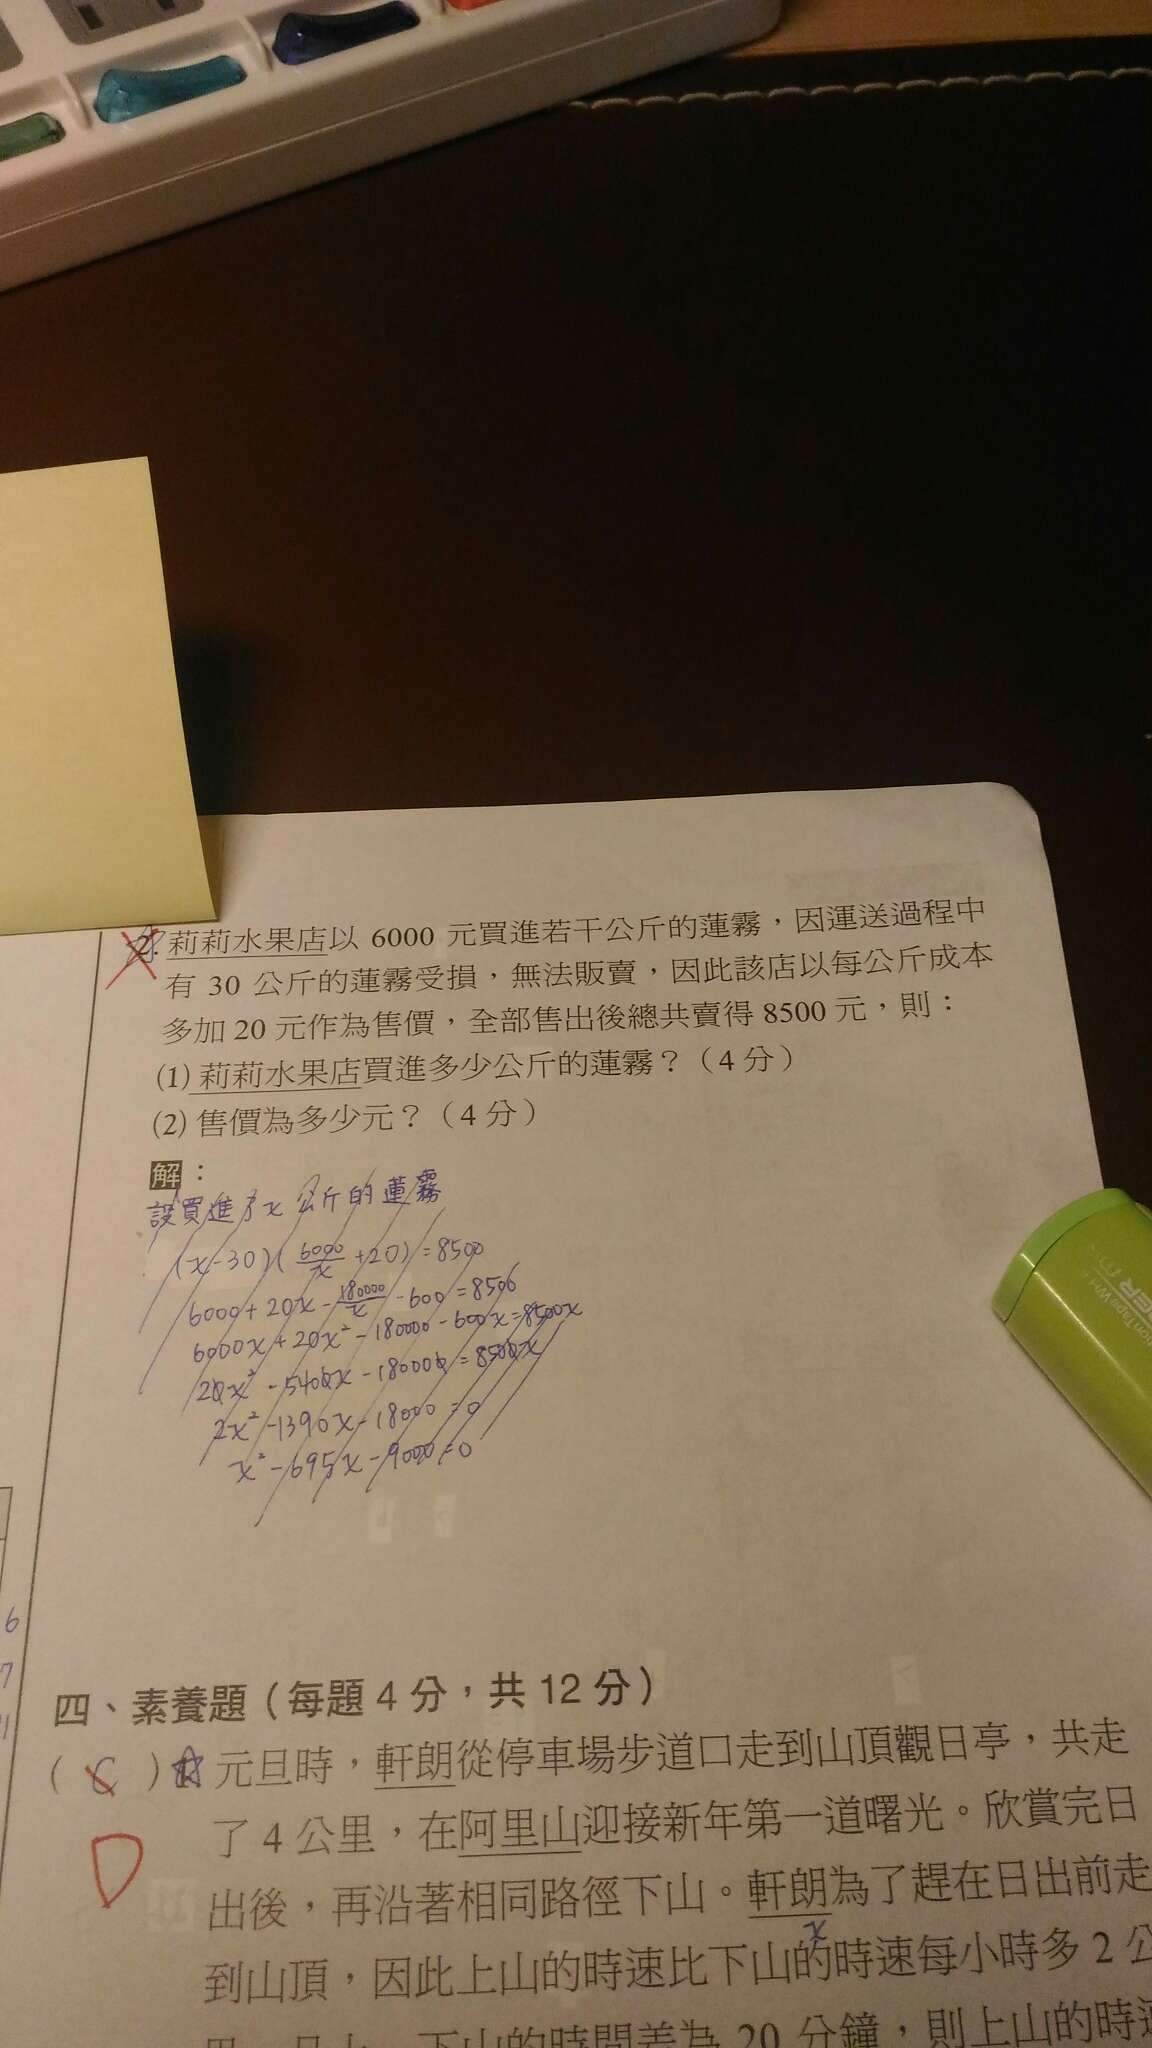 2. 莉莉水果店以 6000 元買進若干公斤的蓮霧，因運送過程中
有 30 公斤的蓮霧受損，無法販賣，因此該店以每公斤成本
多加 20 元作為售價，全部售出後總共賣得 8500 元，則：
(1) 莉莉水果店買進多少公斤的蓮霧？（4 分）
(2) 售價為多少元？（4 分）
解：
設買進了x公斤的蓮霧
(x-30)(6000/x+20)=8500
6000+20x-180000/x-600=8500
6000x+20x²-180000-600x=8500x
20x²-5400x-180000=8500x
2x²-1390x-18000=0
x²-695x-9000=0
6
7
四、素養題（每題 4 分，共 12 分）
( C ) 元旦時，軒朗從停車場步道口走到山頂觀日亭，共走
D
了 4 公里，在阿里山迎接新年第一道曙光。欣賞完日
出後，再沿著相同路徑下山。軒朗為了趕在日出前走
x
到山頂，因此上山的時速比下山的時速每小時多 2 公
下山的時間差為 20 分鐘，則上山的時速